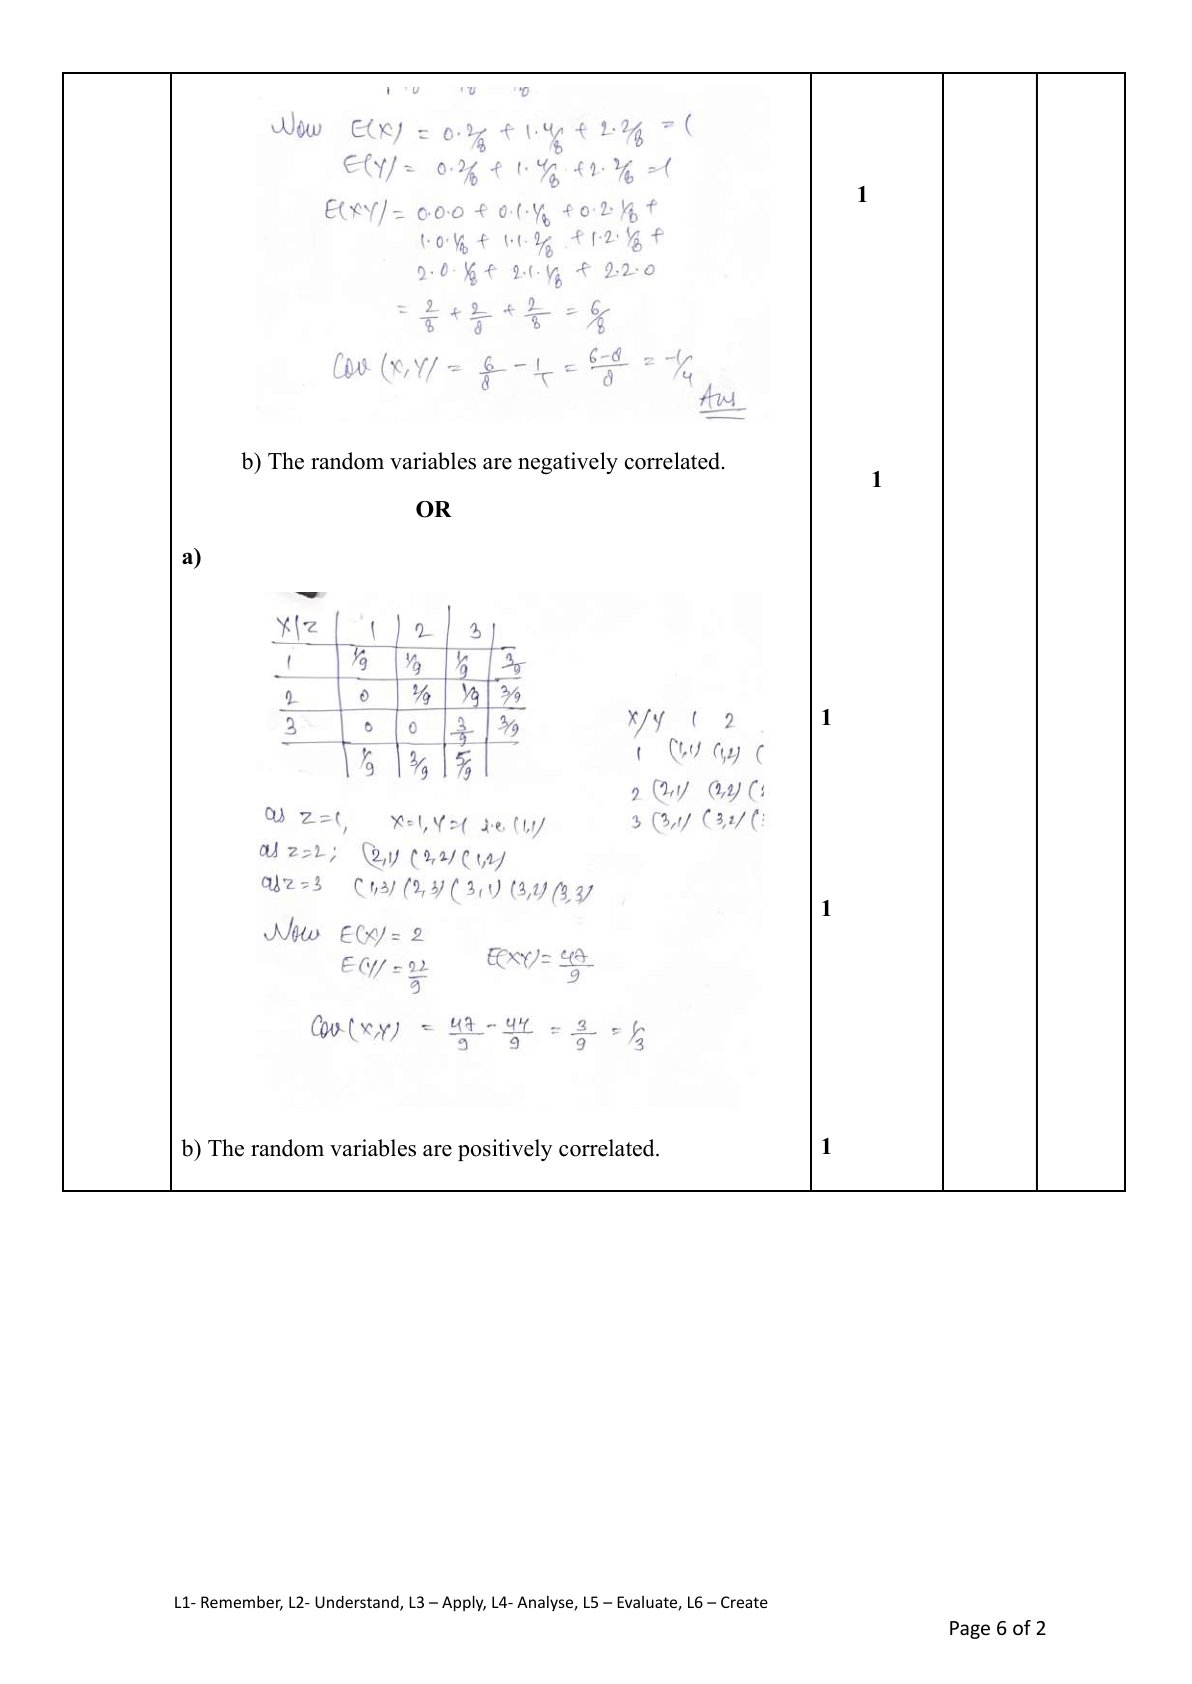 Now E(X) = 0·2/8 + 1·4/8 + 2·2/8 = 1
E(Y) = 0·2/8 + 1·4/8 + 2·2/8 = 1
E(XY) = 0·0·0 + 0·1·1/8 + 0·2·1/8 +
1·0·1/8 + 1·1·2/8 + 1·2·1/8 +
2·0·1/8 + 2·1·1/8 + 2·2·0
= 2/8 + 2/8 + 2/8 = 6/8
Cov (X,Y) = 6/8 - 1/1 = 6-8/8 = -1/4
Ans
1
b) The random variables are negatively correlated.
1
OR
a)
X|Z 1 2 3
1 1/9 1/9 1/9 3/9
2 0 2/9 1/9 3/9
3 0 0 3/9 3/9
1/9 3/9 5/9
X/Y 1 2
1 (1,1) (1,2) (
2 (2,1) (2,2) (2
3 (3,1) (3,2) (3
1
as z=1, X=1, Y=1 i.e (1,1)
as z=2; (2,1) (2,2) (1,2)
as z=3 (1,3) (2,3) (3,1) (3,2) (3,3)
1
Now E(X) = 2
E(Y) = 22/9 E(XY) = 47/9
Cov(X,Y) = 47/9 - 44/9 = 3/9 = 1/3
b) The random variables are positively correlated.
1
L1- Remember, L2- Understand, L3 – Apply, L4- Analyse, L5 – Evaluate, L6 – Create
Page 6 of 2